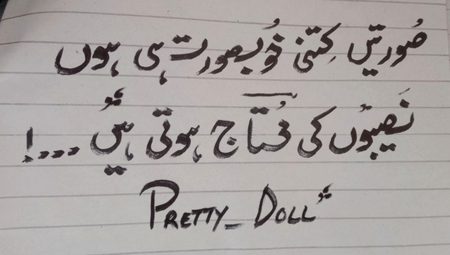 صُورتیں کِتنی خُوبصورت ہی ہوں
نَصیبوں کی مُحتاج ہوتی ہیں ...!
PRETTY_DOLL"